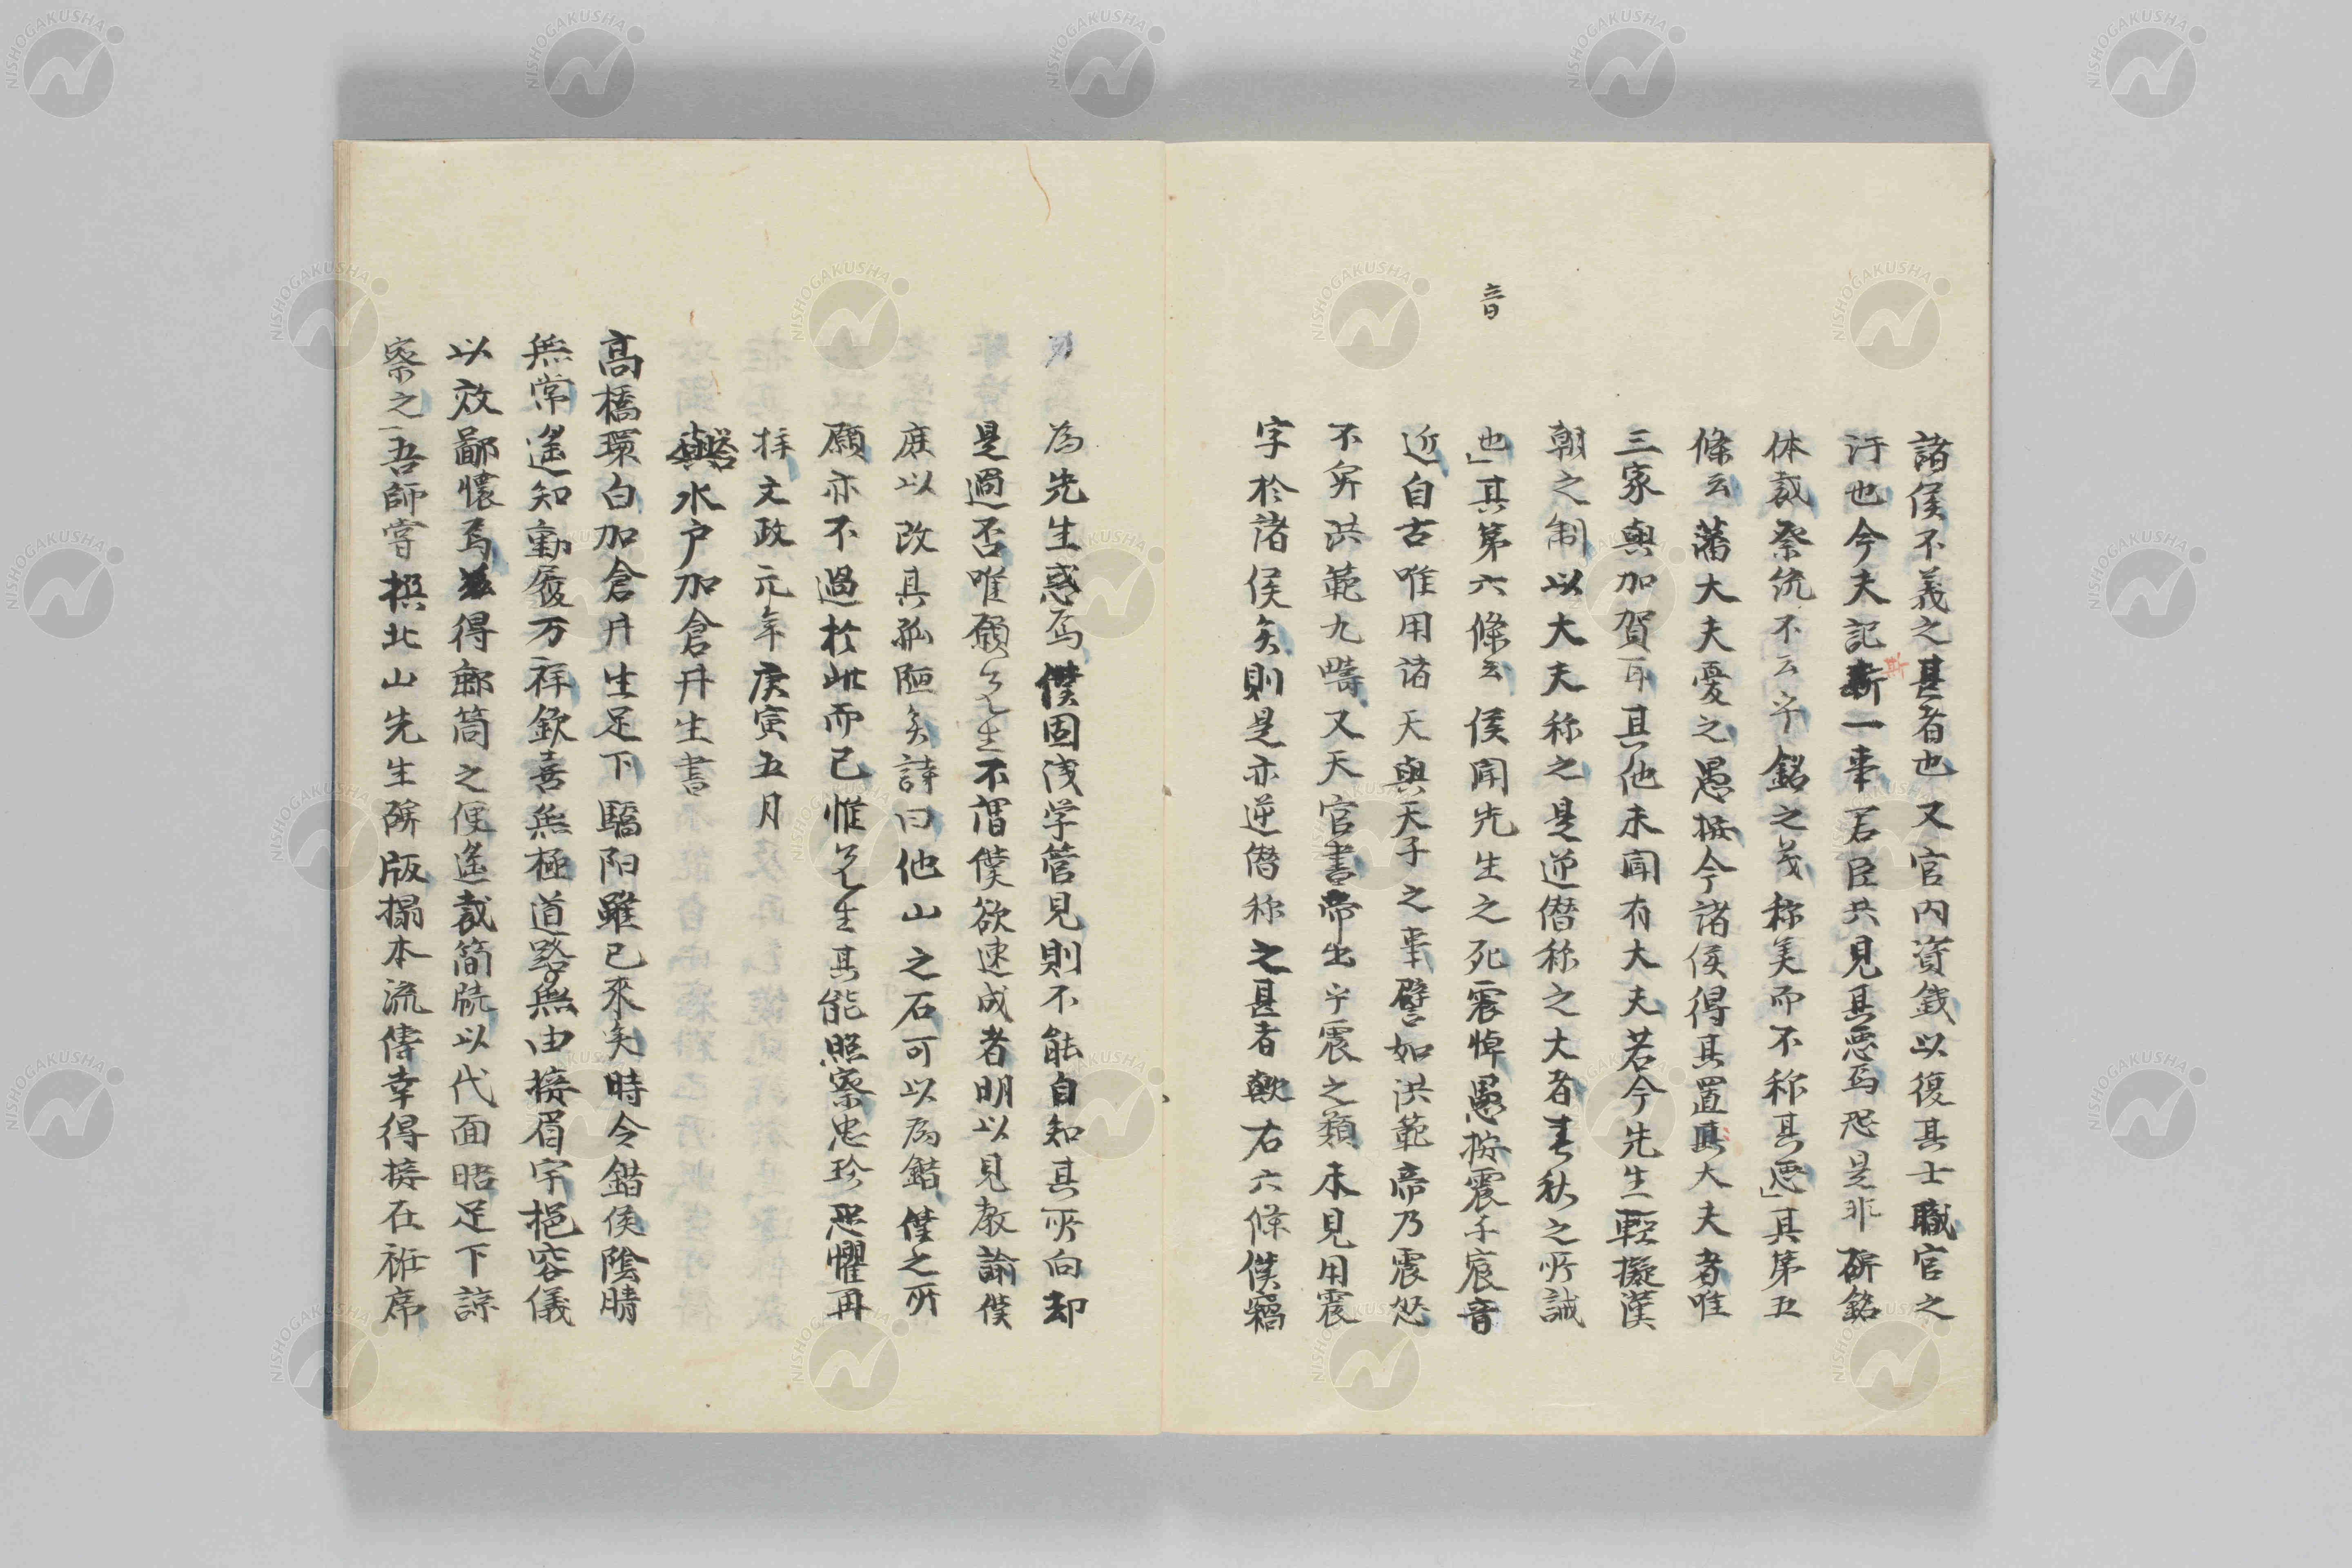 諸侯不義之甚者也又官内資銭以復其士職官之
汙也今夫記斯一事君臣共見其悪焉恐是非硏銘
斯
体裁祭統不云乎銘之義称美而不称其悪」其第五
條云藩大夫憂之愚按今諸侯得其置其大夫者唯
三家與加賀耳其他未聞有大夫若今先生輕擬漢
朝之制以大夫称之是逆僭称之大者春秋之所誡
也」其第六條云侯聞先生之死震悼愚按震子宸音
音
近自古唯用諸天與天子之事譬如洪範帝乃震怒
不畀洪範九疇又天官書帝出乎震之類未見用震
字於諸侯矣則是亦逆僭称之甚者歟右六條僕竊
為先生惑焉僕固浅学管見則不能自知其所向却
是過否唯願先生不謂僕欲速成者明以見教諭僕
庶以改其孤陋矣詩曰他山之石可以為錯僕之所
願亦不過於此而已惟先生其能照察忠珍恐懼再
拝文政元年庚寅五月
答水户加倉井生書
高橋環白加倉井生足下驕陽雖已来矣時令錯侯陰晴
無常遙知動履万祥欽喜無極道路無由接眉宇挹容儀
以效鄙懷焉茲得郵筒之便遙裁簡牘以代面晤足下諒
察之吾師嘗撰北山先生硏版搨本流傳幸得接在袵席